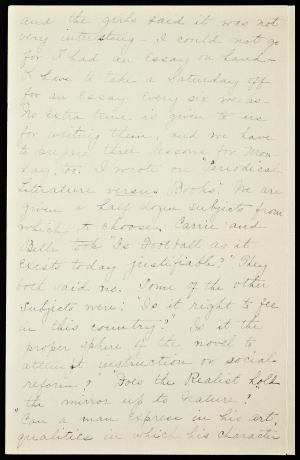 and the girls said it was not
very interesting - I could not go
for I had an essay on hand -
I have to take a Saturday off
for an essay every six weeks -
No extra time is given to us
for writing them, and we have
to prepare three lessons for Mon-
day, too. I wrote on "Periodical
Literature versus Books". We are
given a half dozen subjects from
which to choose. Carrie and
Belle took "Is Football as it
exists today justifiable?" They
both said no. Some of the other
subjects were: "Is it right to fee
in this country?" Is it the
proper sphere of the novel to
attempt instruction or social
reform?" "Does the Realist hold
the mirror up to nature?"
"Can a man express in his art,
qualities in which his character